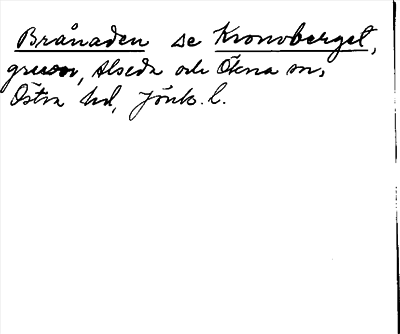 Brånaden se Kronoberget,
gruvor, Alseda och Ökna sn,
Östra hd, Jönk. l.